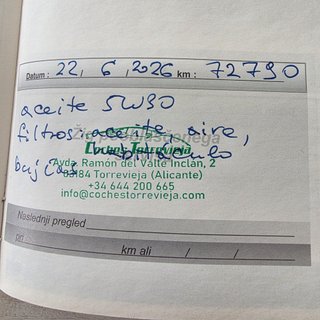 Datum: 22, 6, 2026 km: 72790
aceite 5W30
filtros: aceite, aire,
habitáculo
bujías
Coches Torrevieja
Avda. Ramón del Valle Inclán, 2
03184 Torrevieja (Alicante)
+34 644 200 665
info@cochestorrevieja.com
Naslednji pregled
pri km ali / /